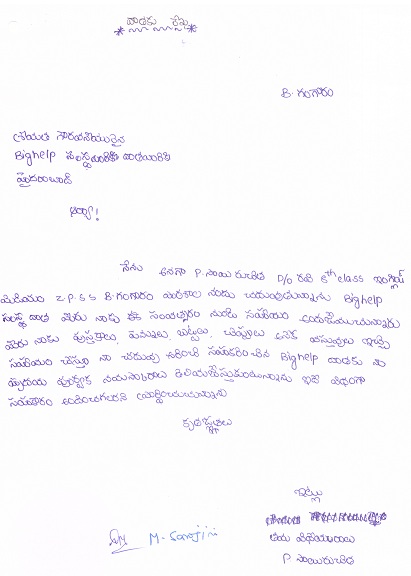 దాతకు లేఖ
B. గంగారం
శ్రీయుత గౌరవనీయులైన
Bighelp సంస్థవారికి దాతయింటికి
హైదరాబాద్
ఆర్యా!
నేను అనగా P. సాయి రుచిత D/o రవి 6th class ఇంగ్లీష్
మీడియం Z.P.S.S B.గంగారం పాఠశాల నందు చదువుతున్నాను Bighelp
సంస్థ దాత మీరు నాకు ఈ సంవత్సరం నుండి సహాయం అందజేయుచున్నారు
మీరు నాకు పుస్తకాలు, పెన్నులు, బట్టలు, చెప్పులు అనేక వస్తువులు ఇచ్చి
సహాయం చేస్తూ నా చదువు సహకరించిన Bighelp దాతకు నా
హృదయ పూర్వక నమస్కారాలు తెలియజేస్తున్నాను ఇదే విధంగా
సహకారం అందించగలరని ప్రార్థించుచున్నాను
కృతజ్ఞతలు
ఇట్లు
తమ విధేయురాలు
P సాయిరుచిత
M. Sarojini